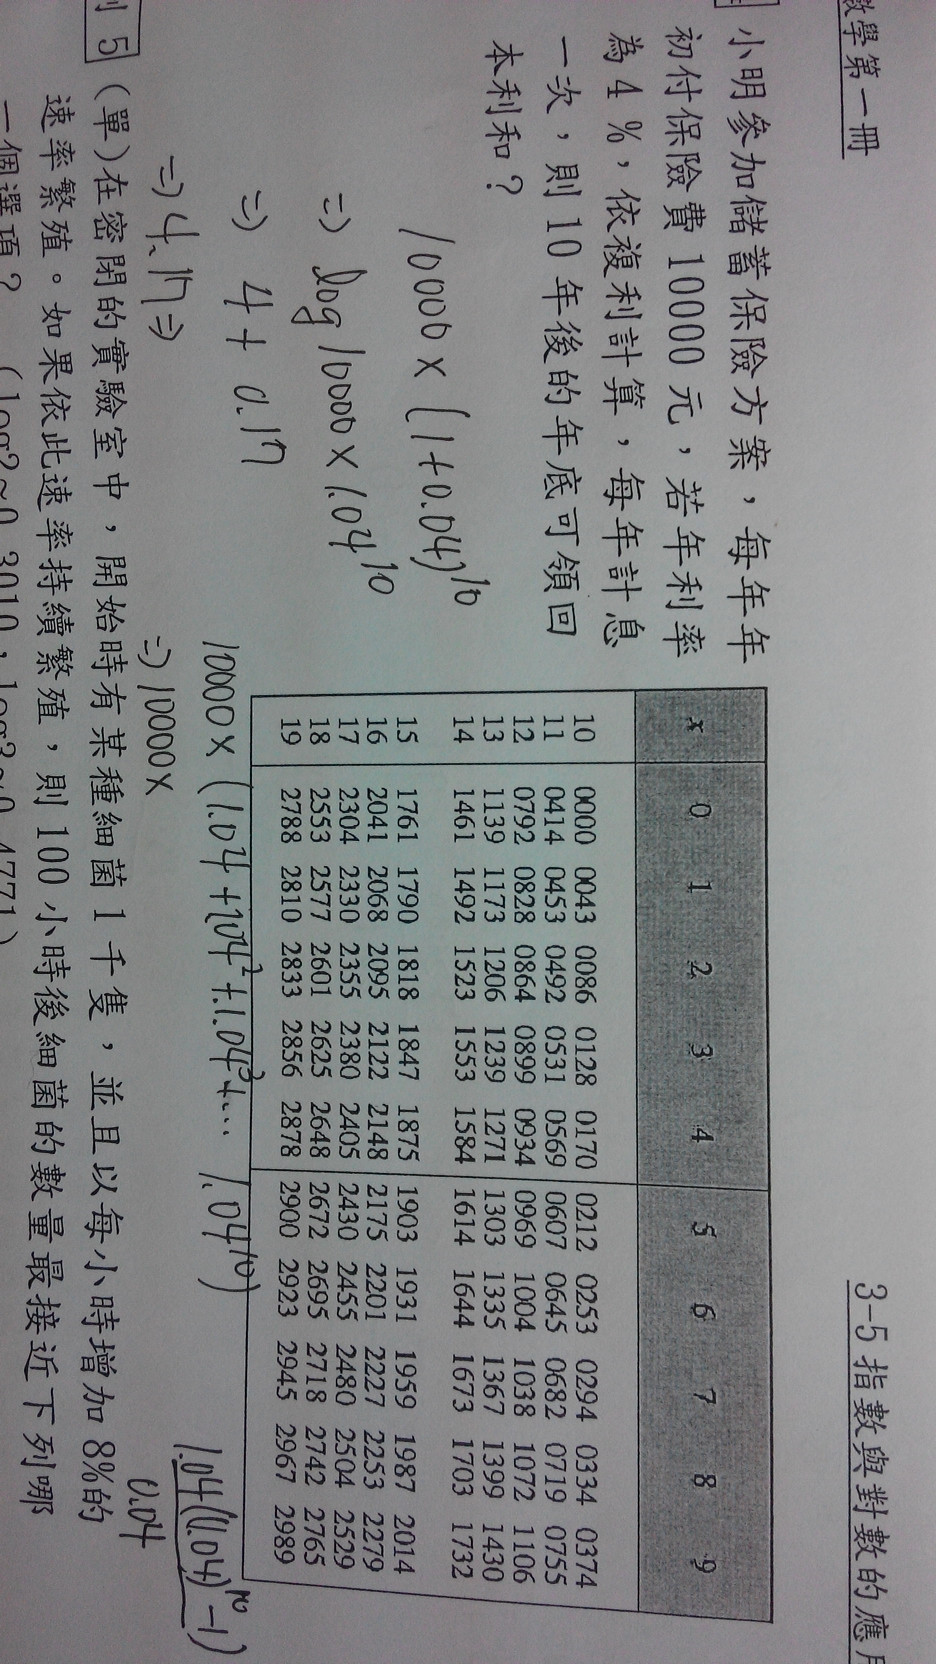 數學第一冊
3-5 指數與對數的應用
小明參加儲蓄保險方案，每年年
初付保險費 10000 元，若年利率
為 4 %，依複利計算，每年計息
一次，則 10 年後的年底可領回
本利和？
10000 × (1+0.04)^10
⇒ log 10000 × 1.04^10
⇒ 4 + 0.17
⇒ 4.17 ⇒
x 0 1 2 3 4 5 6 7 8 9
10 0000 0043 0086 0128 0170 0212 0253 0294 0334 0374
11 0414 0453 0492 0531 0569 0607 0645 0682 0719 0755
12 0792 0828 0864 0899 0934 0969 1004 1038 1072 1106
13 1139 1173 1206 1239 1271 1303 1335 1367 1399 1430
14 1461 1492 1523 1553 1584 1614 1644 1673 1703 1732
15 1761 1790 1818 1847 1875 1903 1931 1959 1987 2014
16 2041 2068 2095 2122 2148 2175 2201 2227 2253 2279
17 2304 2330 2355 2380 2405 2430 2455 2480 2504 2529
18 2553 2577 2601 2625 2648 2672 2695 2718 2742 2765
19 2788 2810 2833 2856 2878 2900 2923 2945 2967 2989
10000 × (1.04 + 1.04^2 + 1.04^3 + ... 1.04^10)
⇒ 10000 ×
1.04(1.04)^10 - 1)
0.04
例 5 (單) 在密閉的實驗室中，開始時有某種細菌 1 千隻，並且以每小時增加 8%的
速率繁殖。如果依此速率持續繁殖，則 100 小時後細菌的數量最接近下列哪
一個選項？ (log2≈0.3010，log3≈0.4771)